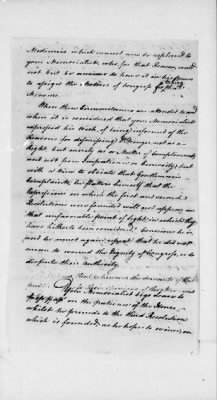 Medinnis which cannot now be explained to
your Memorialist, who, for that Reason, could
not but be anxious to have it in his Power
to apprize the Members of Congress
Measure.
When these Circumstances are attended to and
when it is considered that your Memorialist
expressed his Wish of being informed of the
Reasons for dispensing not as a
Right, but merely as a Matter of Compliment,
and not from Impatience or Curiosity, but
with a View to obviate that Gentleman's
Complaints, he flatters himself that the
Expressions on which the first and second
Resolutions were founded will not appear in
that unfavorable point of Light in which they
have hitherto been considered. Conscious he is,
and he must again repeat that he did not
mean to wound the Dignity of Congress, or to
dispute their Authority.
Your Memorialist begs Leave to
on the patience of the House
whilst he proceeds to the third Resolution
which is founded, as he hopes to evince, on